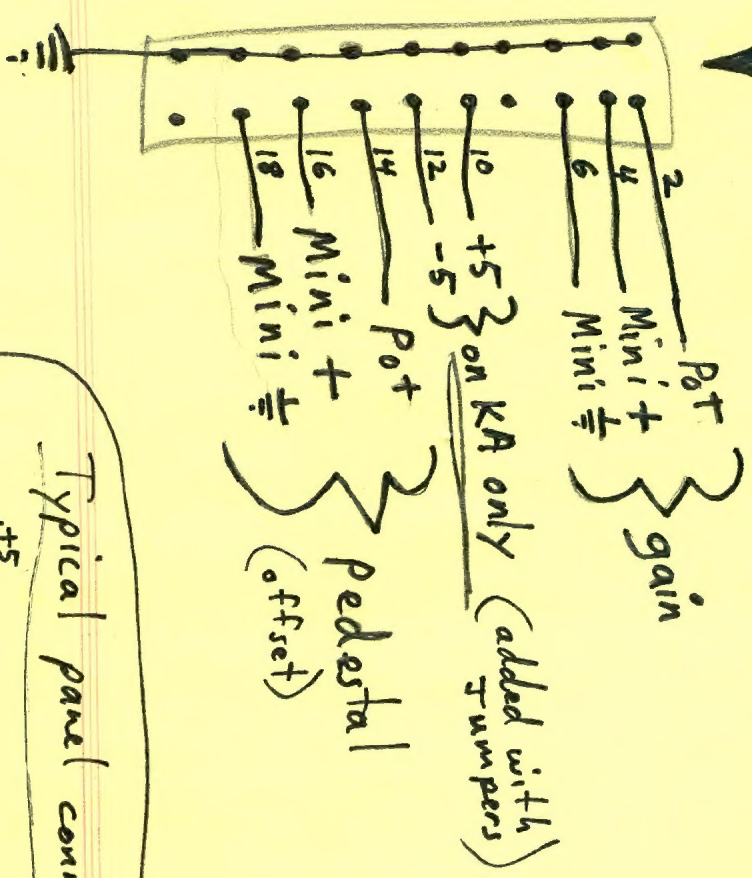 2 Pot
4 Mini +
6 Mini ⏚
gain
10 +5
12 -5
on KA only (added with
Jumpers)
14 Pot
16 Mini +
18 Mini ⏚
pedestal
(offset)
Typical panel
+5